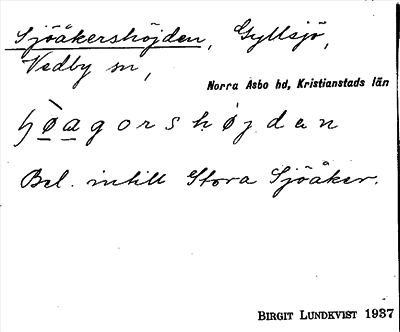 Sjöåkershöjden, Gyllsjö,
Vedby sn,
Norra Åsbo hd, Kristianstads län
Bel. intill Stora Sjöåker.
BIRGIT LUNDKVIST 1937